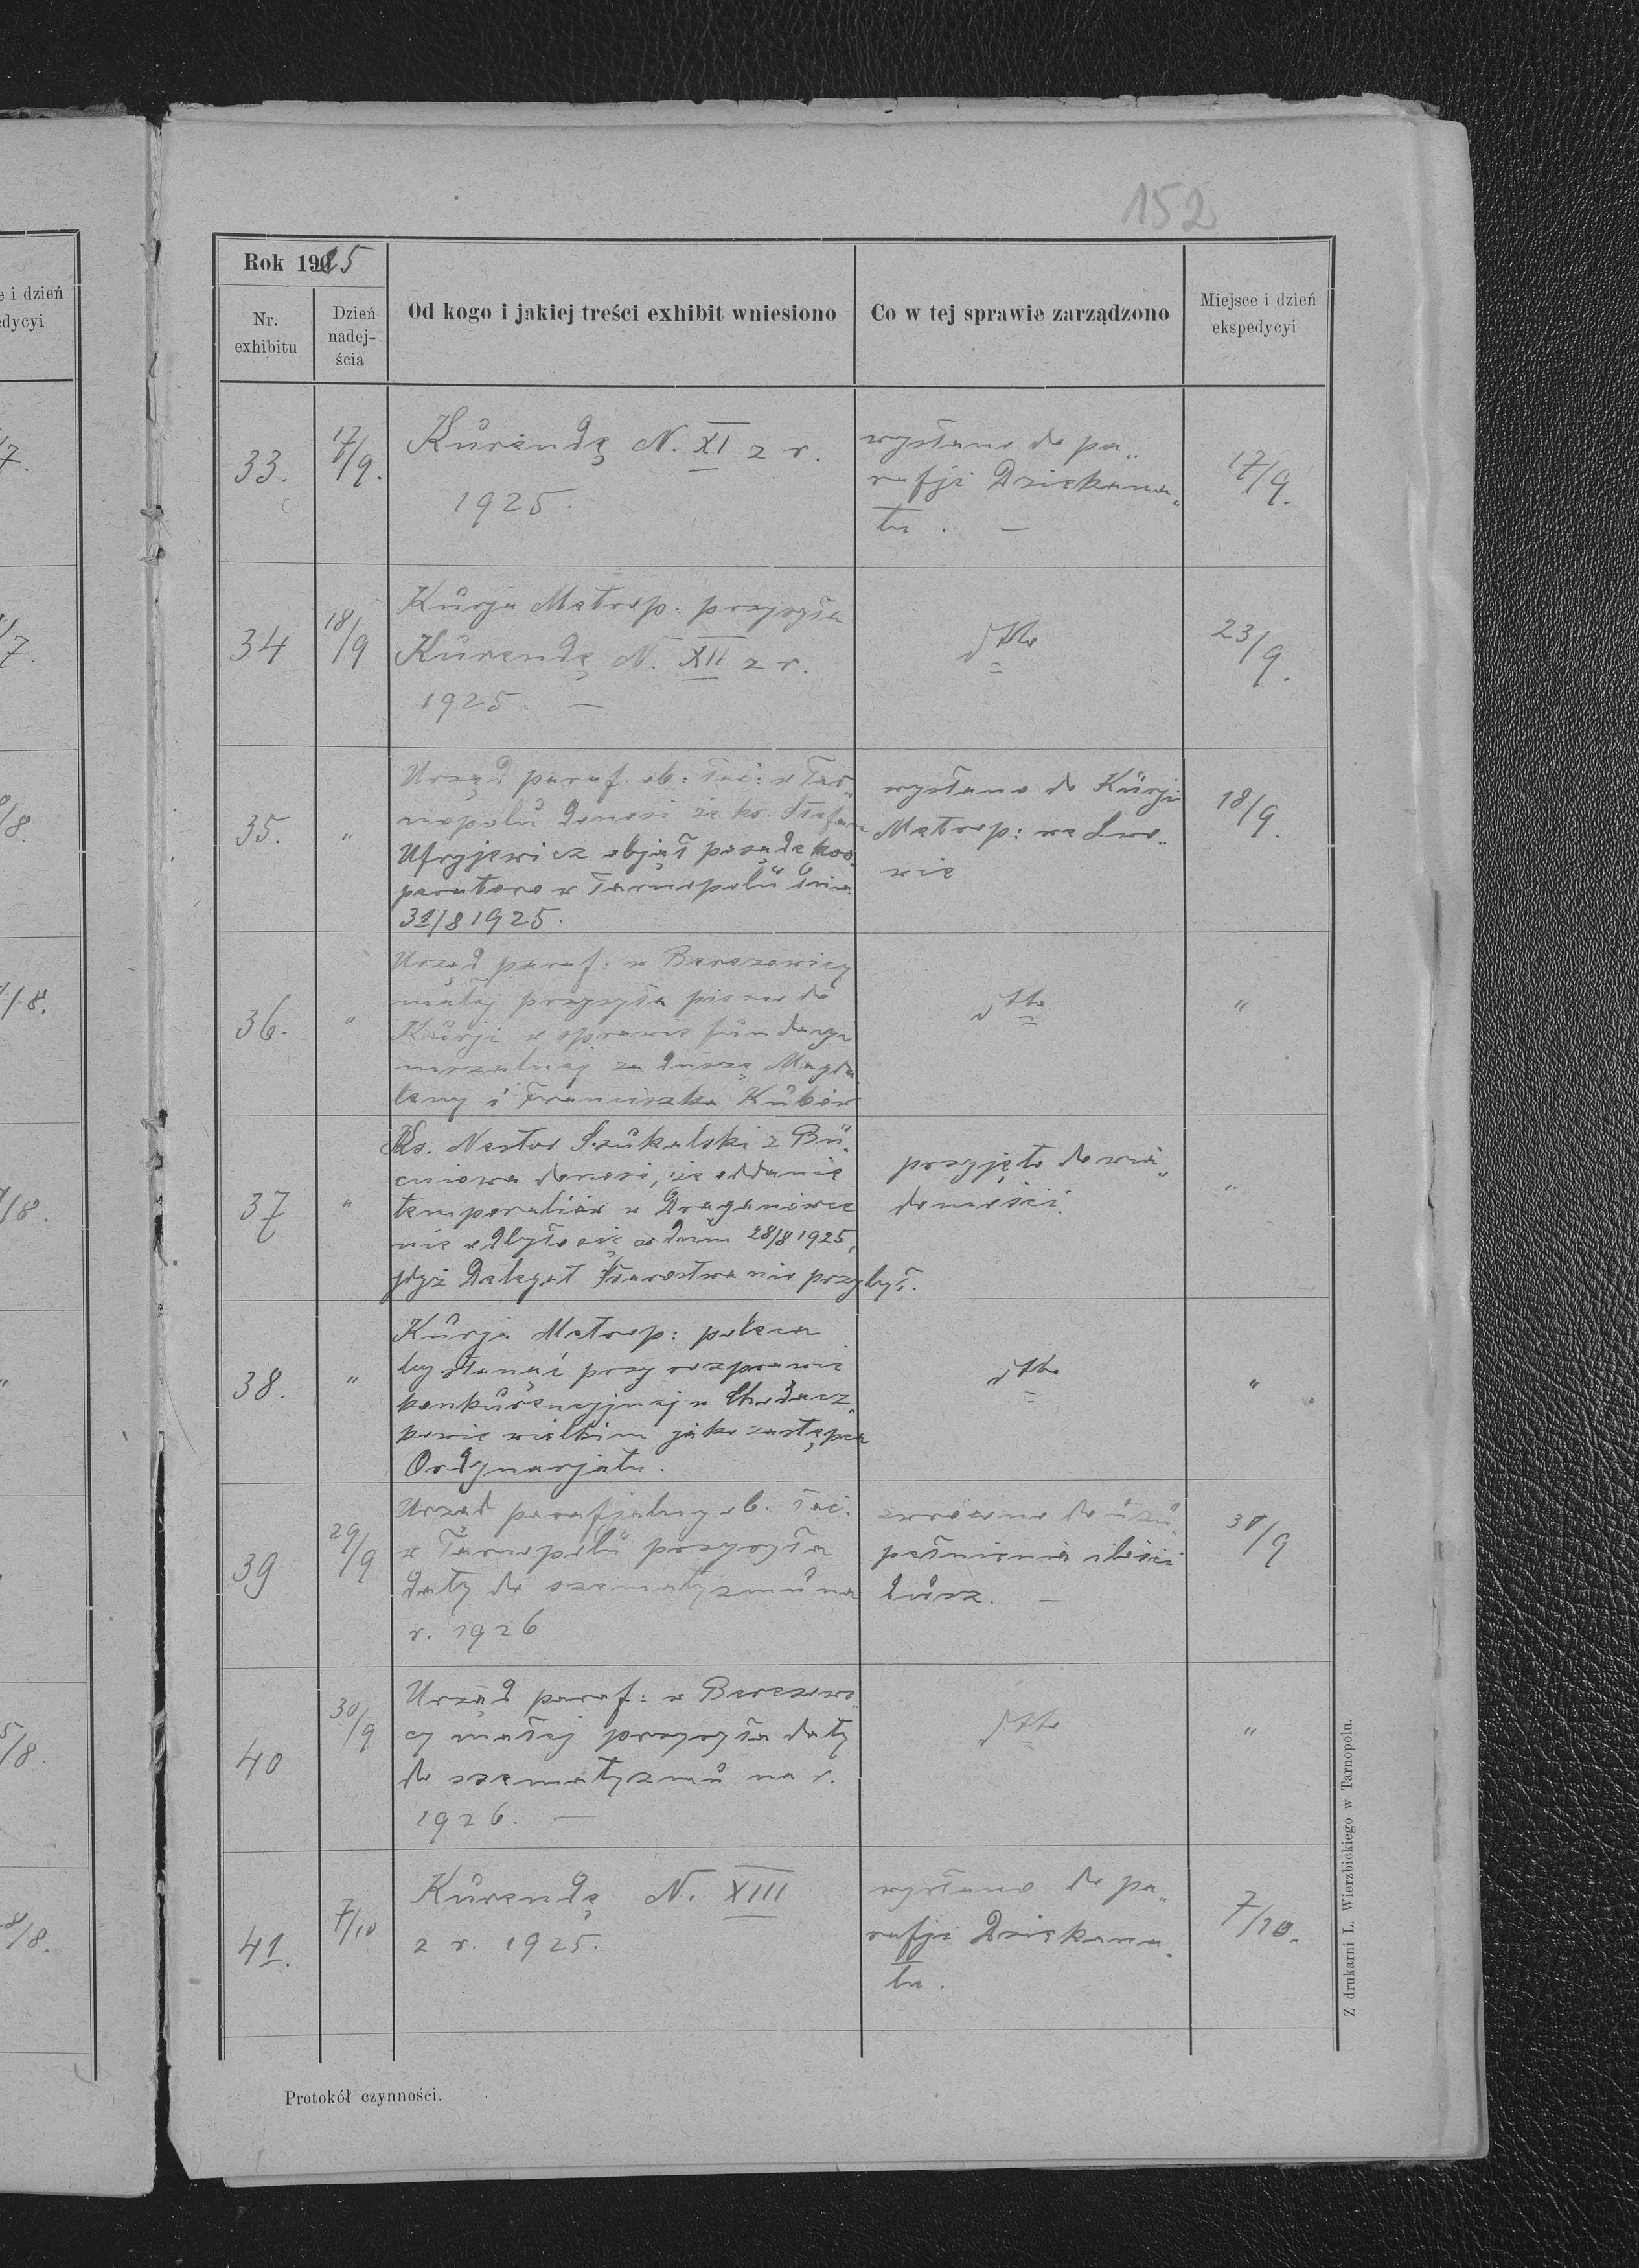 152
e i dzień
edycyi
Rok 1925
Nr.
exhibitu
Dzień
nadej-
ścia
Od kogo i jakiej treści exhibit wniesiono
Co w tej sprawie zarządzono
Miejsce i dzień
ekspedycyi
33.
17/9.
Kurendę N. XI z r.
1925.
wysłano do pa„
rafji Dziekana„
tu. —
17/9.
34
18/9
Kurja Metrop: przysyła
Kurendę N. XII z r.
1925. —
dtto
23/9.
35.
"
Urząd paraf. ob: łać: w Tar„
nopolu donosi że ks. Stefan
Ufryjewicz objął posadę koo„
peratora w Tarnopolu dnia
31/8 1925.
wysłano do Kurji
Metrop: we Lwo„
wie
18/9.
36.
"
Urząd paraf: w Berezowicy
małej przysyła pismo do
Kurji w sprawie fundacji
mszalnej za duszę Magda
leny i Franciszka Kubów
dtto
"
37
"
Ks. Nestor Szukalski z Bu„
cniowa donosi, że oddanie
temporaliów w Draganówce
nie odbyło się w dniu 28/8 1925,
gdyż Delegat Starostwa nie przybył.
przyjęto do wia„
domości.
"
38.
"
Kurja Metrop: poleca
by stanąć przy rozprawie
konkurencyjnej w Chodacz„
kowie wielkim jako zastępca
Ordynarjatu.
dtto
"
39
29/9
Urząd parafjalny ob. łać.
w Tarnopolu przysyła
daty do szematyzmu na
r. 1926
zwrócono do uzu„
pełnienia ilości
dusz. —
30/9
40
30/9
Urząd paraf: w Berezowi„
cy małej przysyła daty
do szematyzmu na r.
1926. —
dtto
"
41.
7/10
Kurendę N. XIII
z r. 1925.
wysłano do pa„
rafji Dziekana„
tu.
7/10.
Protokół czynności.
Z drukarni L. Wierzbickiego w Tarnopolu.